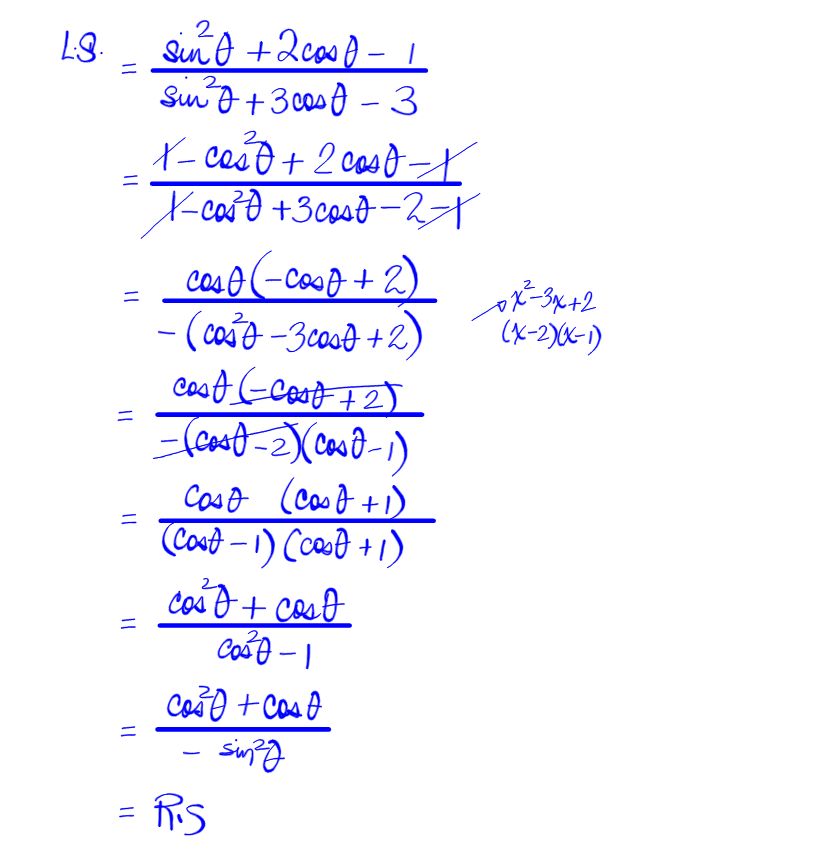 L.S. = (sin²θ + 2cosθ - 1) / (sin²θ + 3cosθ - 3)
= (1 - cos²θ + 2cosθ - 1) / (1 - cos²θ + 3cosθ - 2 - 1)
= cosθ(-cosθ + 2) / -(cos²θ - 3cosθ + 2)
x² - 3x + 2
(x-2)(x-1)
= cosθ(-cosθ + 2) / -(cosθ - 2)(cosθ - 1)
= cosθ (cosθ + 1) / (cosθ - 1)(cosθ + 1)
= (cos²θ + cosθ) / (cos²θ - 1)
= (cos²θ + cosθ) / (- sin²θ)
= R.S